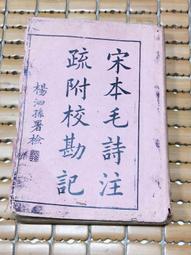 宋本毛詩注
疏附校勘記
楊泗孫署檢